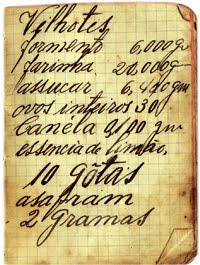 Vilhotes
formento 6,000 gr
farinha 20,000 g
assucar 6,400 gm
ovos inteiros 30
Canéla 0,100 gm
essencia de limão,
10 gôtas
asafram
2 Gramas